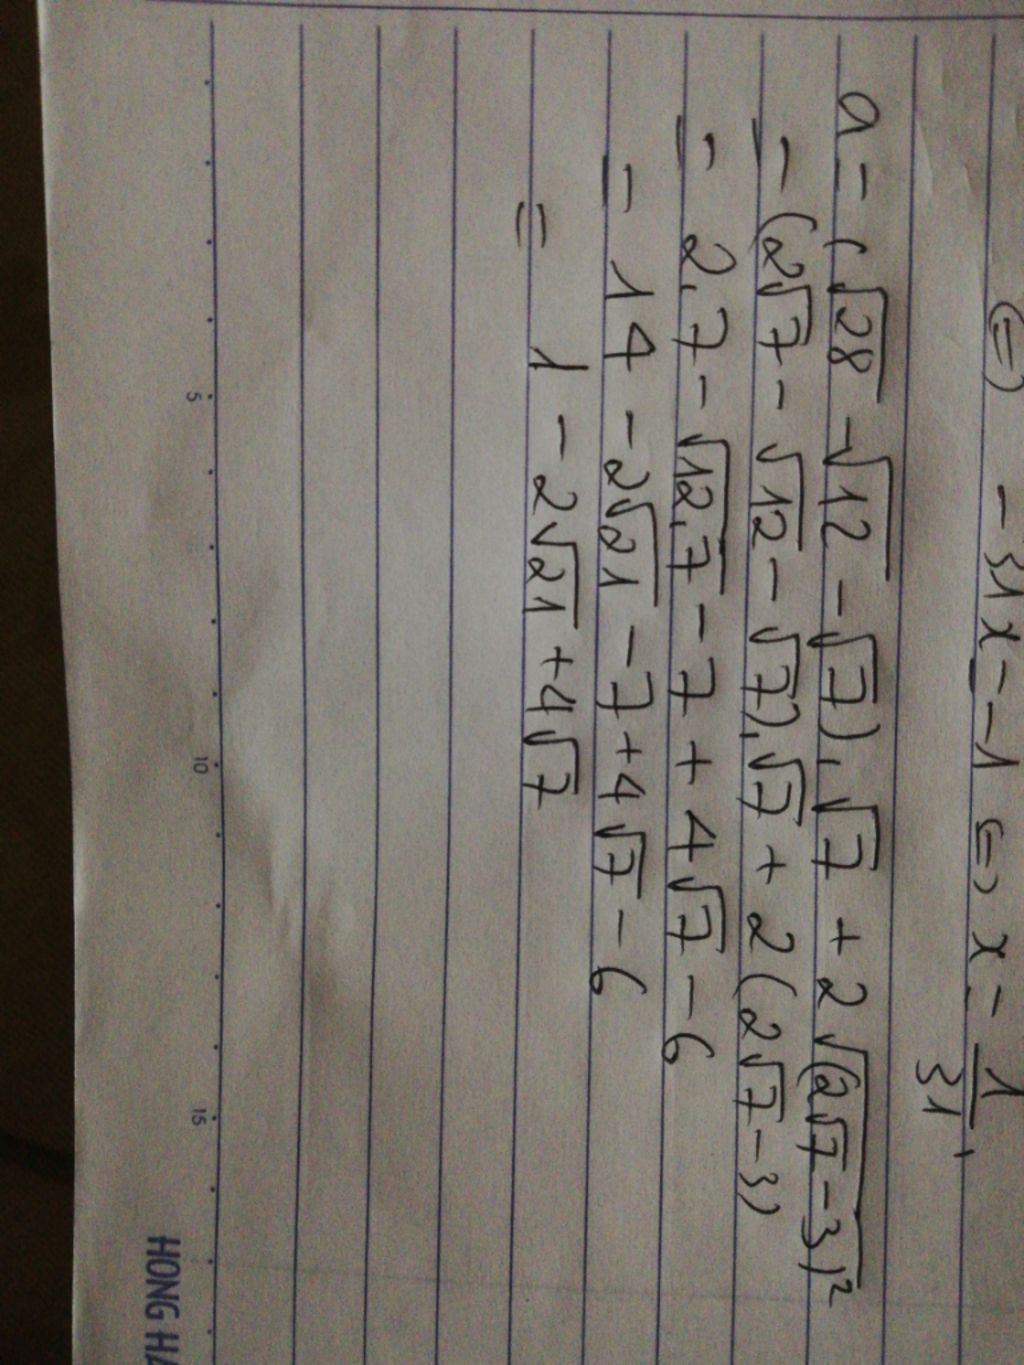 ⇔ - 31x = -1 ⇔ x = 1/31.
a = (√28 - √12 - √7).√7 + 2√(2√7 - 3)²
= (2√7 - √12 - √7).√7 + 2(2√7 - 3)
= 2.7 - √12.7 - 7 + 4√7 - 6
= 14 - 2√21 - 7 + 4√7 - 6
= 1 - 2√21 + 4√7
5 10 15
HONG HA